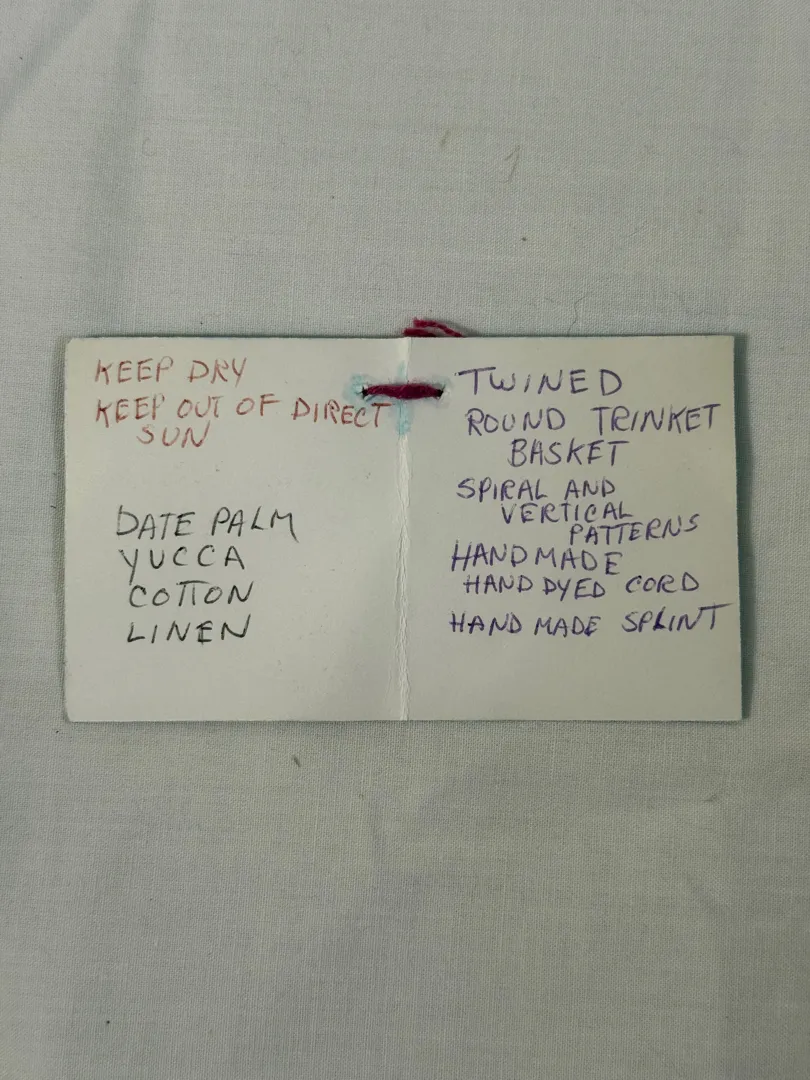 KEEP DRY
KEEP OUT OF DIRECT
SUN
DATE PALM
YUCCA
COTTON
LINEN
TWINED
ROUND TRINKET
BASKET
SPIRAL AND
VERTICAL
PATTERNS
HANDMADE
HAND DYED CORD
HAND MADE SPLINT